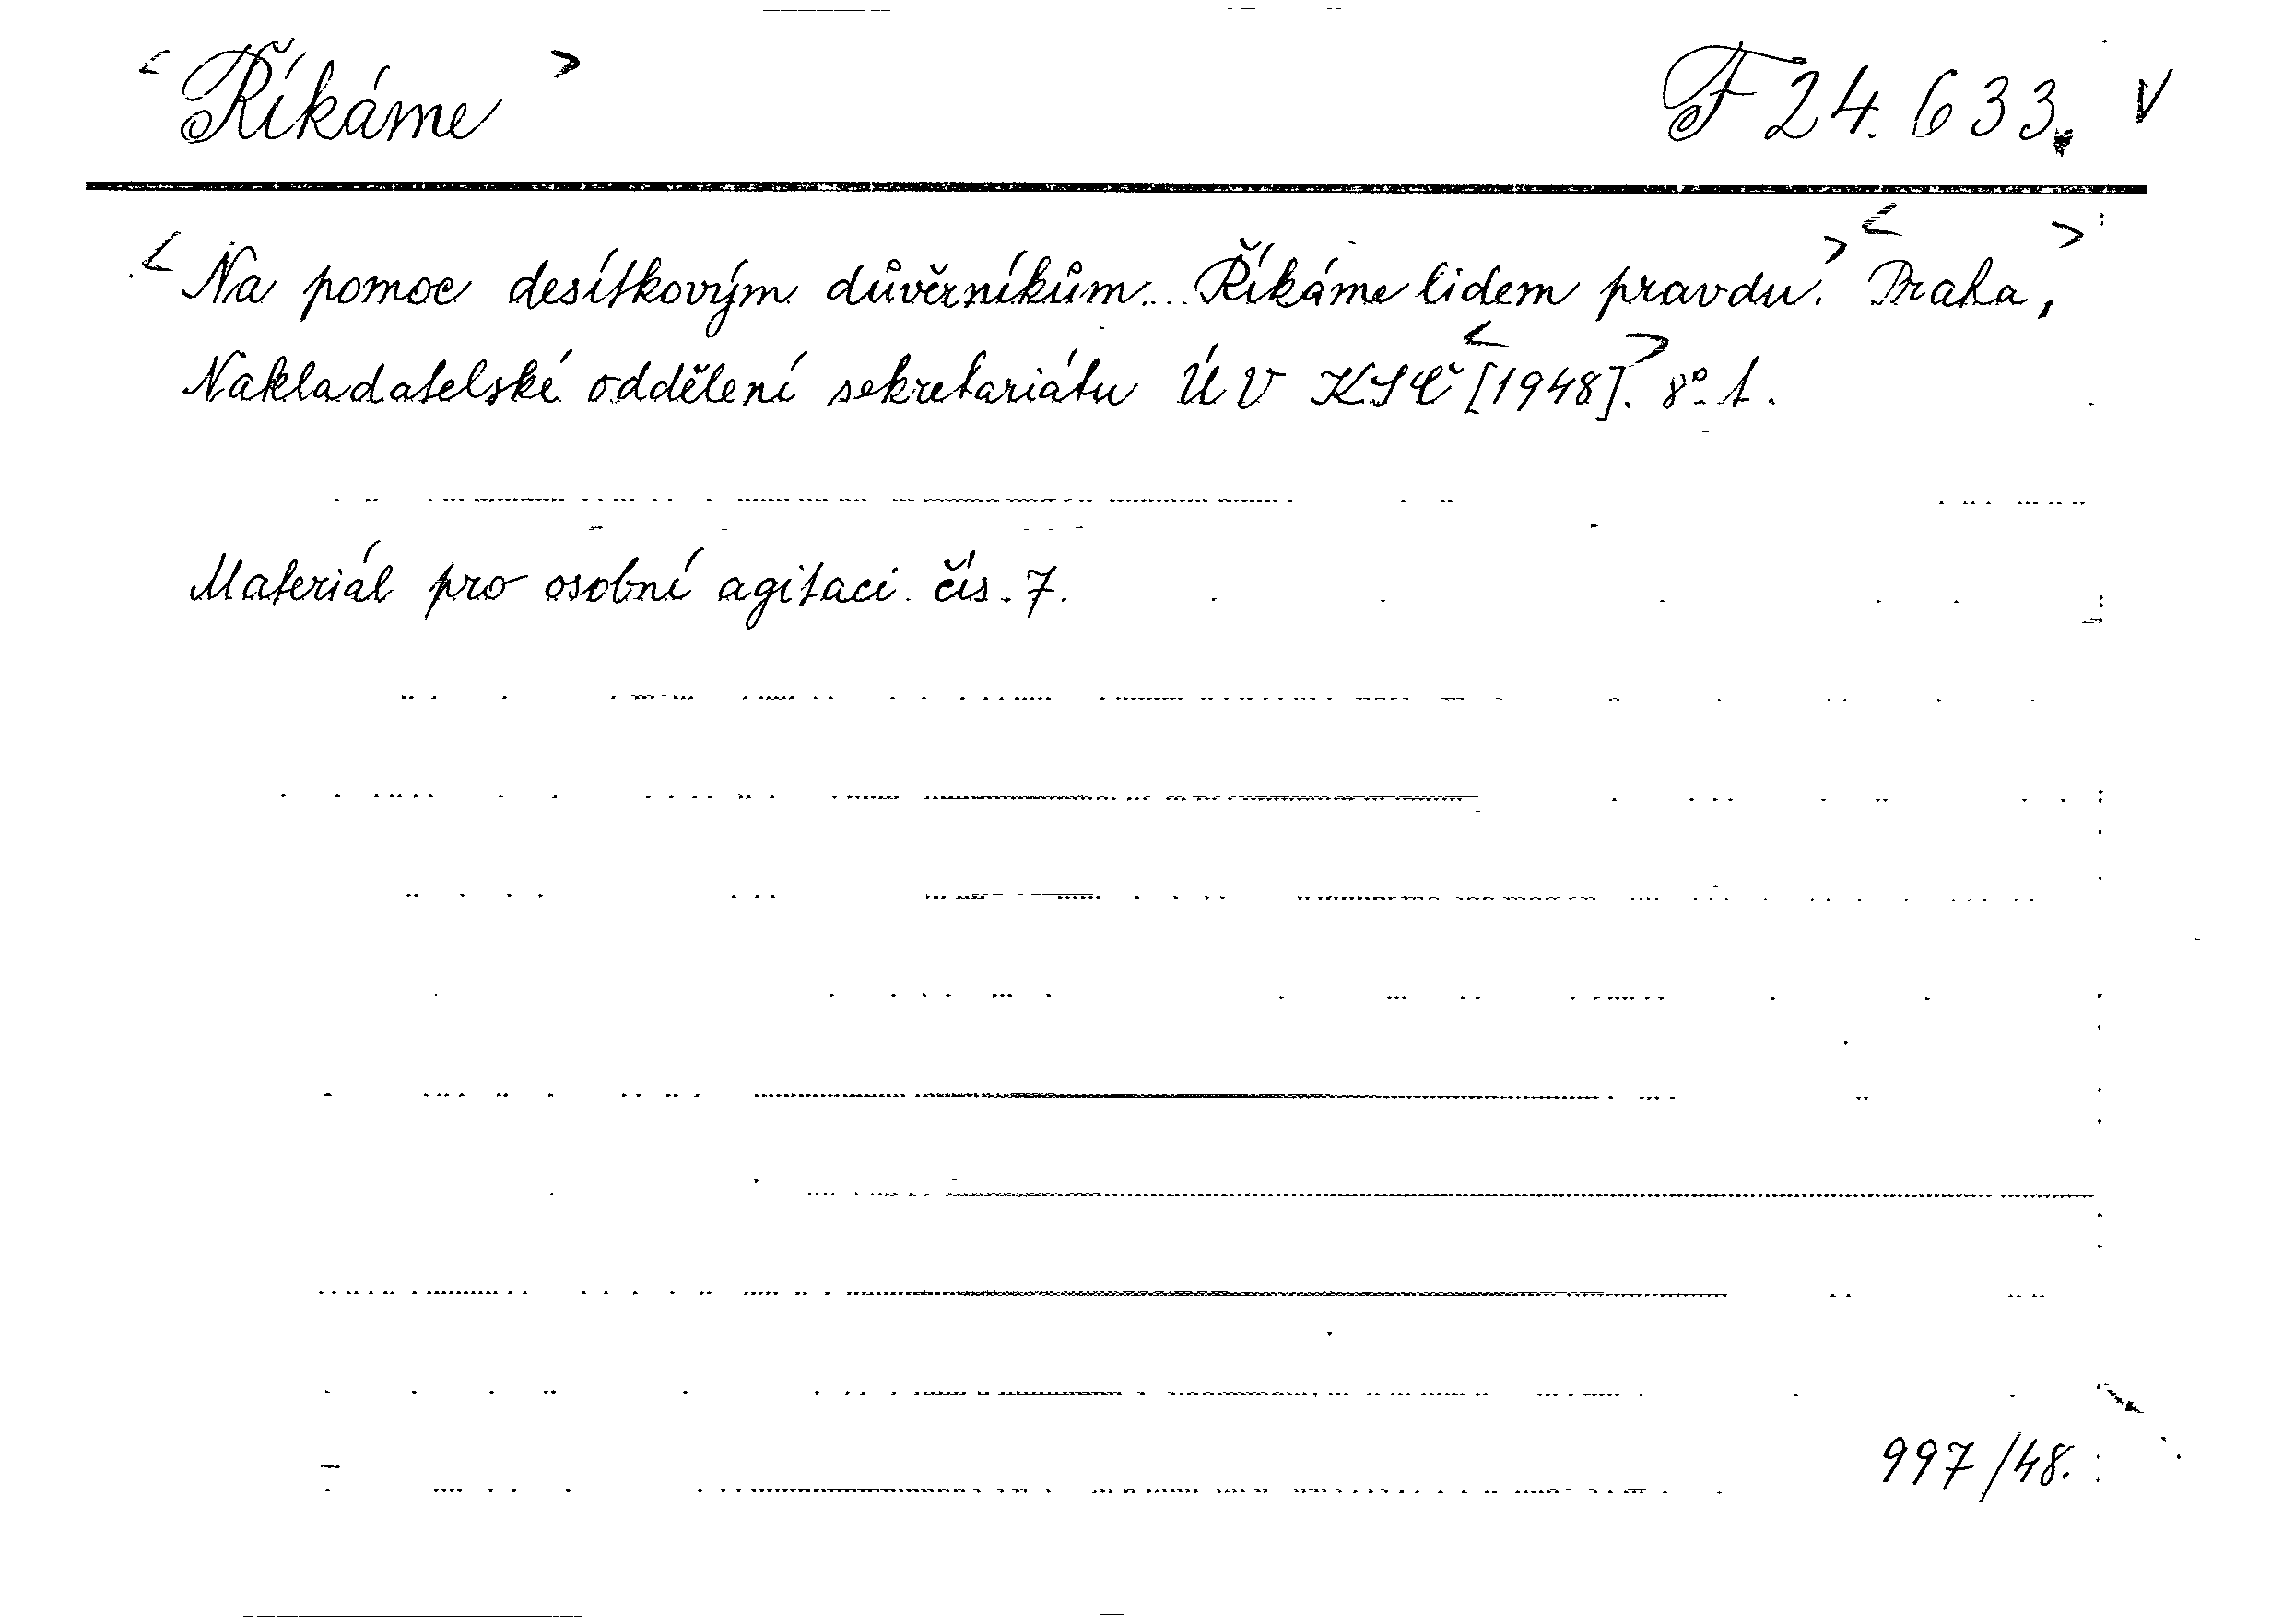 < Říkáme > F 24.633. V
< Na pomoc desítkovým důvěrníkům... Říkáme lidem pravdu. > < Praha, >
Nakladatelské oddělení sekretariátu ÚV KSČ < [1948]. > 8° 1.
Materiál pro osobní agitaci. čís. 7.
997/48.